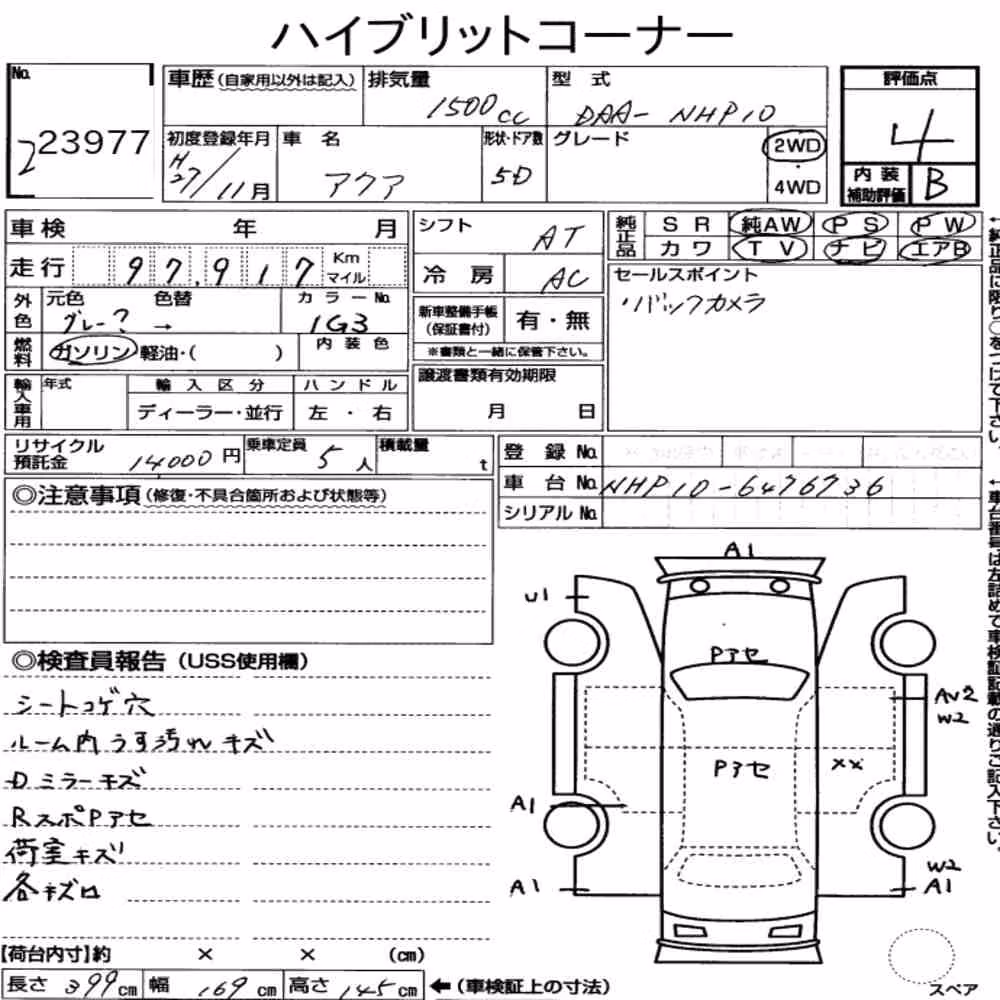 ハイブリットコーナー
No.
223977
車歴(自家用以外は記入)
排気量
1500cc
型 式
DAA-NHP10
評価点
4
内装
補助評価
B
初度登録年月
H27/11月
車 名
アクア
形状・ドア数
5D
グレード
2WD
・
4WD
車検 年 月
走行 97,917 Km
マイル
シフト AT
冷 房 AC
純正品
SR 純AW PS PW
カワ TV ナビ エアB
外色
元色 色替
グレー? →
カラーNo.
1G3
燃料
ガソリン 軽油・( )
内装色
新車整備手帳
(保証書付)
有・無
※書類と一緒に保管下さい。
セールスポイント
・バックカメラ
輸入車用
年式
輸入区分
ディーラー・並行
ハンドル
左・右
譲渡書類有効期限
月 日
リサイクル
預託金
14000円
乗車定員
5人
積載量
t
登 録 No.
車 台 No. NHP10-6476736
シリアル No.
◎注意事項(修復・不具合箇所および状態等)
◎検査員報告(USS使用欄)
シートコゲ穴
ルーム内うす汚れキズ
Dミラーキズ
RスポPアセ
荷室キズ
各キズロ
A1
U1
Pアセ
AV2
W2
Pアセ
××
A1
A1
W2
A1
スペア
【荷台内寸】約 × × (cm)
長さ 399cm 幅 169cm 高さ 145cm
←(車検証上の寸法)
←純正品に限り○をつけて下さい。
←車台番号は左詰めで車検証記載の通りご記入下さい。